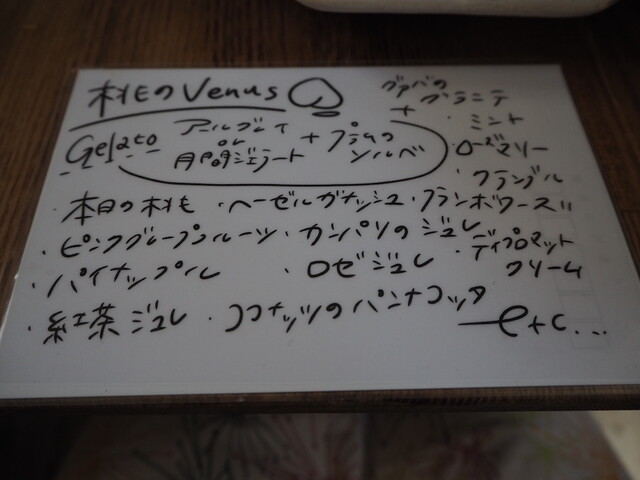 桃のVenus
グァバの
グラニテ
+
・ミント
Gelato
アールグレイ
or
月替ジェラート
+ プラムの
ソルベ
・ローズマリー
・クランブル
・本日の桃 ・ヘーゼルガナッシュ ・フランボワーズ
・ピンクグレープフルーツ ・カンパリのジュレ
・ディプロマット
クリーム
・パイナップル ・ロゼジュレ
・紅茶ジュレ ・ココナッツのパンナコッタ
etc...